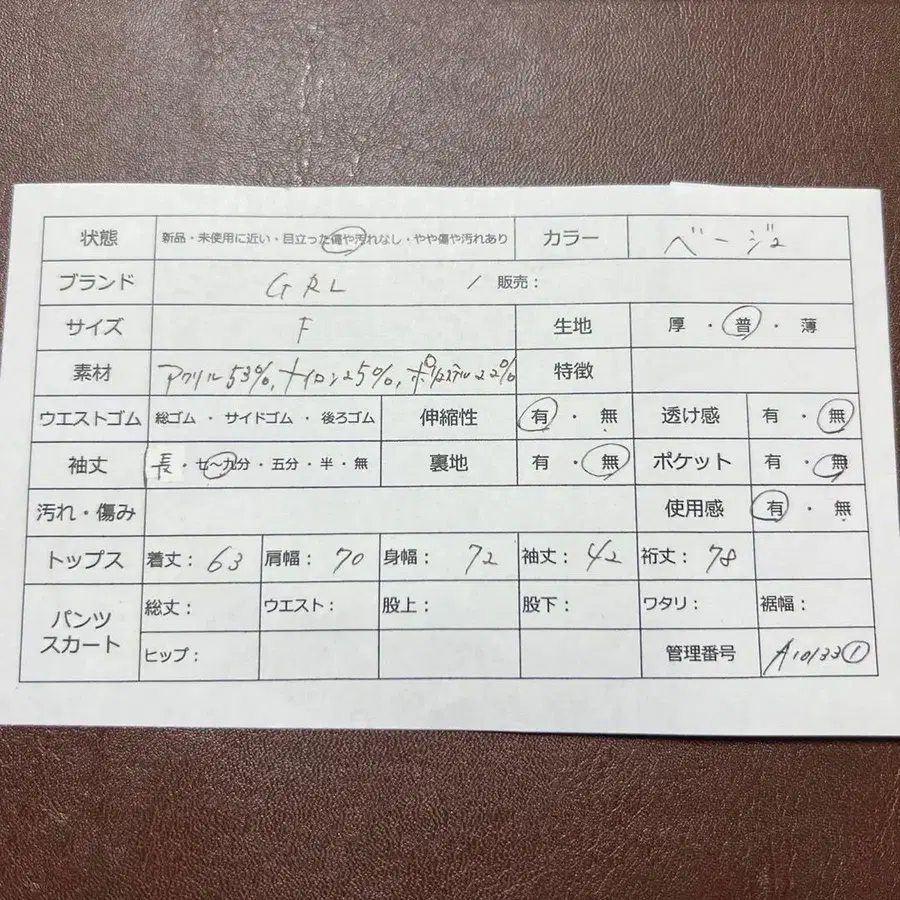 状態 新品・未使用に近い・目立った傷や汚れなし・やや傷や汚れあり カラー ベージュ
ブランド GRL / 販売：
サイズ F 生地 厚・普・薄
素材 アクリル53%,ナイロン25%,ポリエステル22% 特徴
ウエストゴム 総ゴム・サイドゴム・後ろゴム 伸縮性 有・無 透け感 有・無
袖丈 長・七〜九分・五分・半・無 裏地 有・無 ポケット 有・無
汚れ・傷み 使用感 有・無
トップス 着丈：63 肩幅：70 身幅：72 袖丈：42 裄丈：78
パンツ
スカート
総丈： ウエスト： 股上： 股下： ワタリ： 裾幅：
ヒップ： 管理番号 A10133①